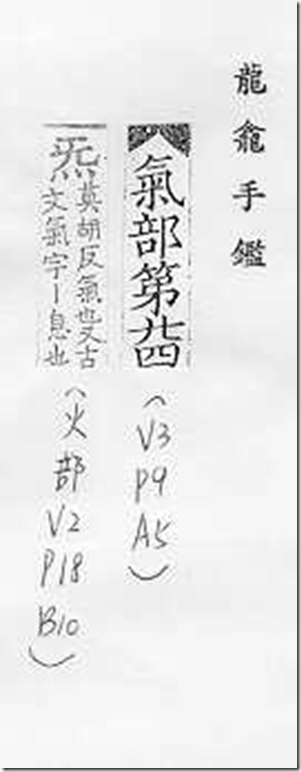 龍龕手鑑
氣部第廿四
(V3
P9
A5)
炁莫胡反氣也又古
文氣字丨息也
(火部
V2
P18
B10)